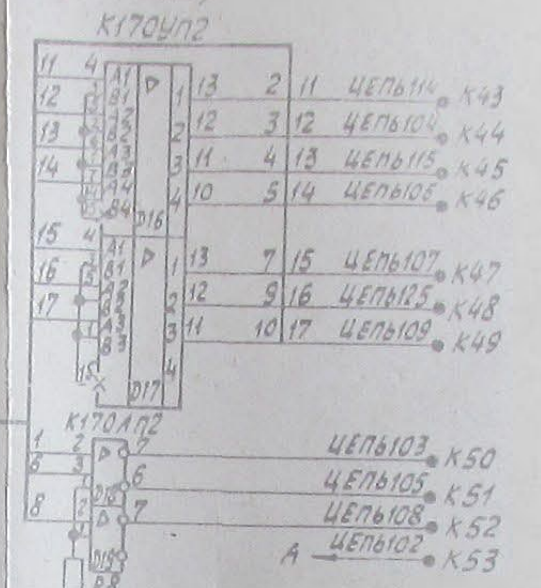 К170УП2
11 4 А1 1 13 2 11 ЦЕПЬ114 К43
12 В1 2 12 3 12 ЦЕПЬ104 К44
13 3 11 4 13 ЦЕПЬ115 К45
14 А4 4 10 5 14 ЦЕПЬ106 К46
В4 D16
15 4 А1 1 13 7 15 ЦЕПЬ107 К47
16 В1 2 12 9 16 ЦЕПЬ125 К48
17 А3 3 11 10 17 ЦЕПЬ109 К49
В3 4
15 D17
К170АП2
1 2 7 ЦЕПЬ103 К50
6 3 6 ЦЕПЬ105 К51
8 7 ЦЕПЬ108 К52
А ЦЕПЬ102 К53